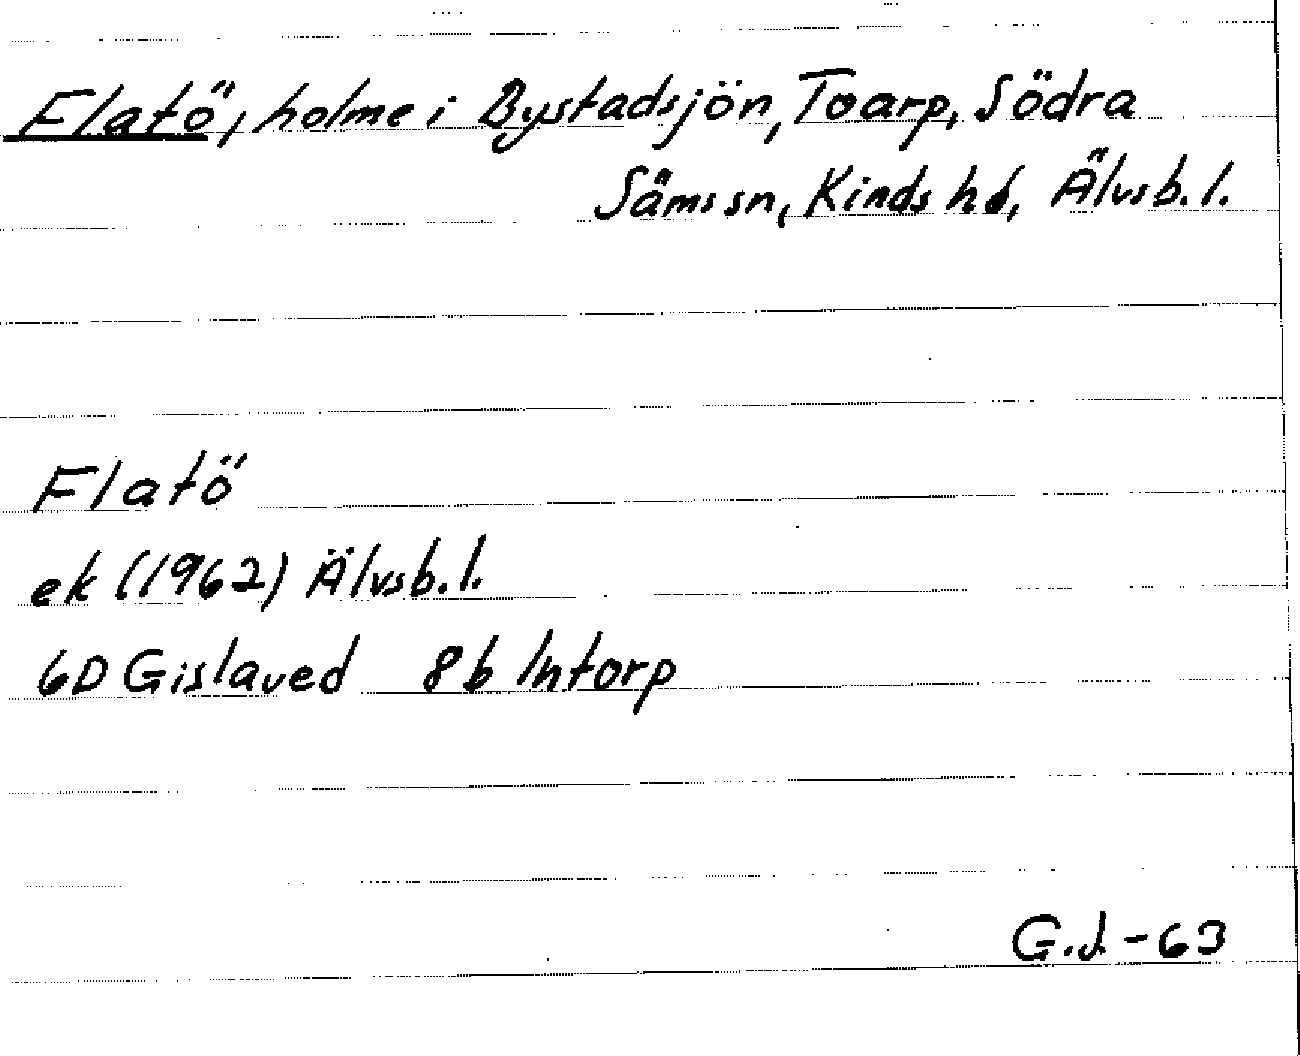 Flatö, holme i Bystadsjön, Toarp, Södra
Säms sn, Kinds hd, Älvsb. l.
Flatö
ek (1962) Älvsb. l.
6D Gislaved 8b Intorp
G.J. -63